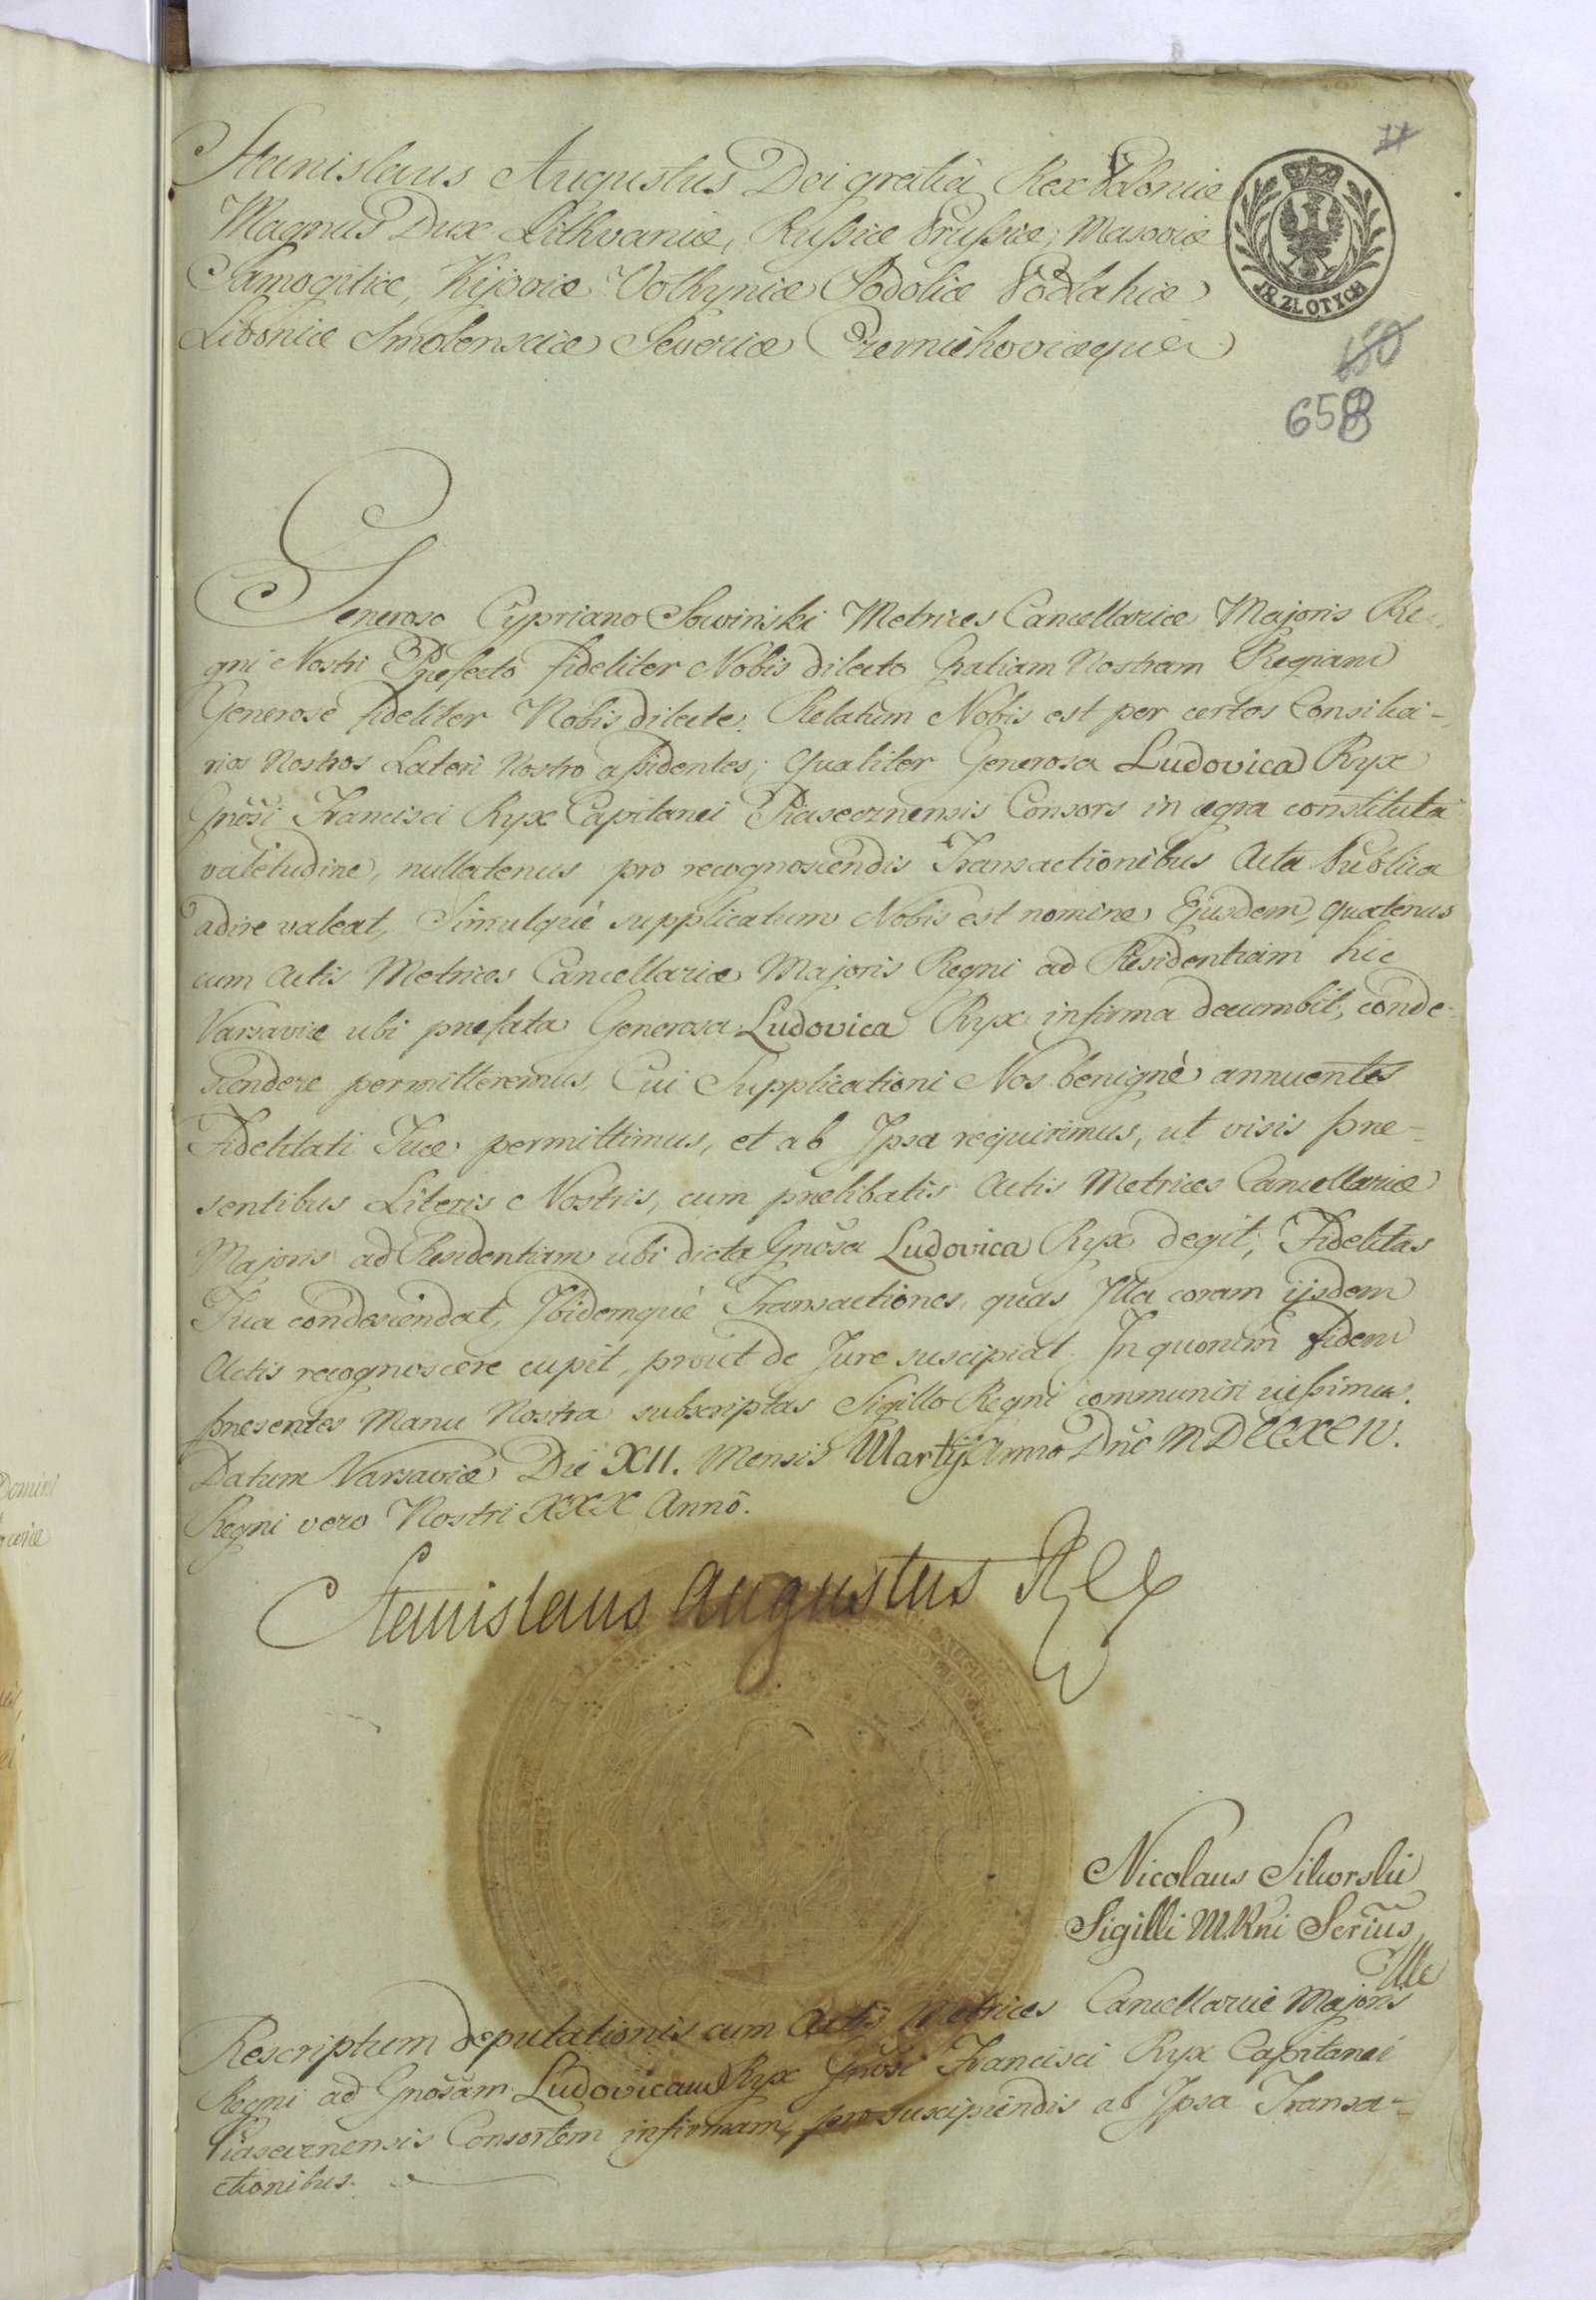 Stanislaus Augustus Dei gratiâ Rex Poloniæ
Magnus Dux Lithvaniæ, Russiæ Prussiæ, Masoviæ
Samogitiæ, Kijoviæ Volhyniæ Podoliæ Podlahiæ
Livoniæ Smolensciæ Severiæ Czerniechoviæque
JR. ZŁOTYCH
658
Generoso Cypriano Sowinski Metrices Cancellariæ Majoris Re-
gni Nostri Præfecto fideliter Nobis dilecto Gratiam Nostram Regiam
Generose fideliter Nobis dilecte. Relatum Nobis est per certos Consilia-
rios Nostros Lateri Nostro assidentes; qualiter Generosa Ludovica Ryx
Gnosi Francisci Ryx Capitanei Piasecznensis Consors in ægra constituta
valetudine, nullatenus pro recognoscendis Transactionibus Acta Publica
adire valeat, Simulqué supplicatum Nobis est nomine Ejusdem, quatenus
cum Actis Metrices Cancellariæ Majoris Regni ad Residentiam hic
Varsaviæ ubi præfata Generosa Ludovica Ryx infirma decumbit, conde-
scendere permitteremus, Cui Supplicationi Nos benignè annuentes
Fidelitati Tuæ permittimus, et ab Ipsa requirimus, ut visis præ-
sentibus Literis Nostris, cum prælibatis Actis Metrices Cancellariæ
Majoris ad Residentiam ubi dicta Gnosa Ludovica Ryx degit, Fidelitas
Tua condescendat, Ibidemqué Transactiones, quas Illa coram ijsdem
Actis recognoscere cupit, prout de Jure suscipiat. In quorum fidem
præsentes Manu Nostra subscriptas Sigillo Regni communiri jussimus.
Datum Varsaviæ Die XII. Mensis Martij Anno Dnĩ MDCCXCIV.
Regni vero Nostri XXX Annô.
Stanislaus Augustus Rex
Nicolaus Sikorski
Sigilli M. Rni Scrius
Rescriptum deputationis cum Actis Metrices Cancellariæ Majoris
Regni ad Gnosam Ludovicam Ryx Gnosi Francisci Ryx Capitanei
Piasecznensis Consortem infirmam, pro suscipiendis ab Ipsa Transa-
ctionibus.